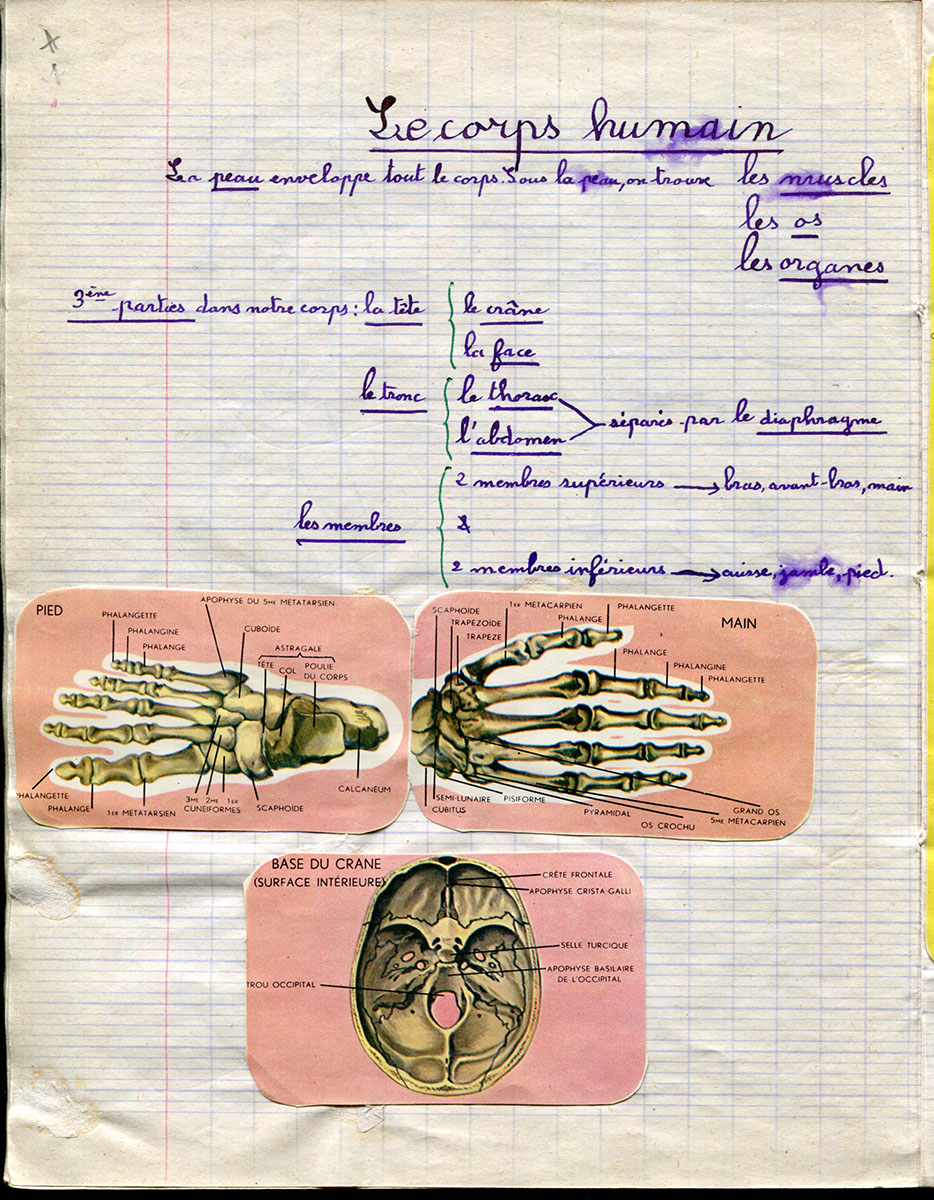 Le corps humain
La peau enveloppe tout le corps. Sous la peau, on trouve les muscles
les os
les organes
3ème parties dans notre corps : la tête { le crâne
la face
le tronc { le thorax
l'abdomen
séparés par le diaphragme
2 membres supérieurs → bras, avant-bras, main
les membres { &
2 membres inférieurs → cuisse, jambe, pied.
PIED
APOPHYSE DU 5ME METATARSIEN
PHALANGETTE
PHALANGINE
PHALANGE
CUBOÏDE
ASTRAGALE
TÊTE
COL
POULIE
DU CORPS
CALCANÉUM
HALANGETTE
PHALANGE
1ER MÉTATARSIEN
3ME 2ME 1ER
CUNÉIFORMES
SCAPHOÏDE
MAIN
SCAPHOÏDE
TRAPÉZOÏDE
TRAPÈZE
1ER METACARPIEN
PHALANGE
PHALANGETTE
PHALANGE
PHALANGINE
PHALANGETTE
SEMI-LUNAIRE
CUBITUS
PISIFORME
PYRAMIDAL
OS CROCHU
GRAND OS
5ME MÉTACARPIEN
BASE DU CRANE
(SURFACE INTÉRIEURE)
CRÊTE FRONTALE
APOPHYSE CRISTA-GALLI
SELLE TURCIQUE
APOPHYSE BASILAIRE
DE L'OCCIPITAL
TROU OCCIPITAL